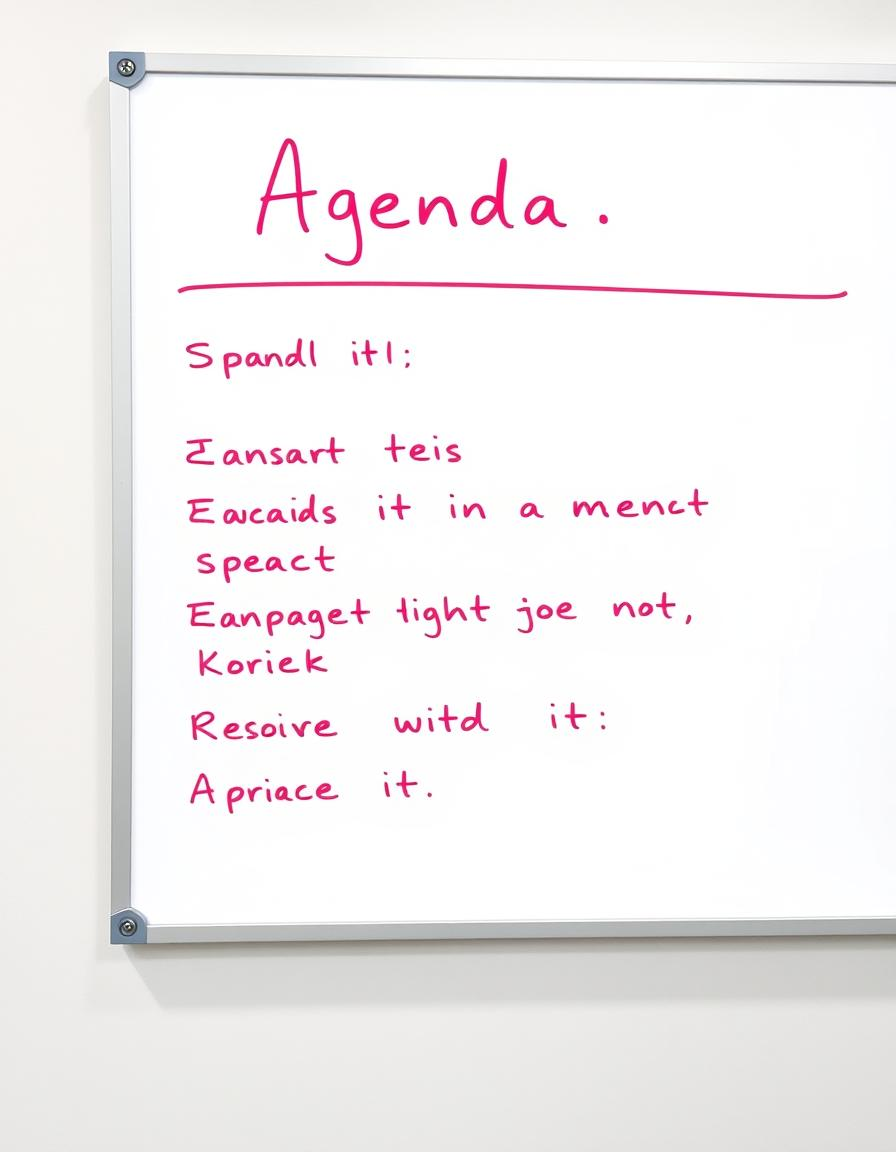 Agenda.
Spandl itl:
Zansart teis
Eawcaids it in a menct
speact
Eanpaget tight joe not,
Koriek
Resoive witd it:
Apriace it.